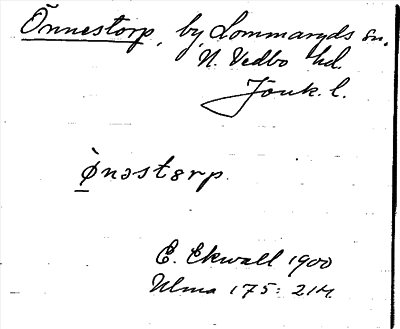 Önnestorp, by, Lommaryds sn,
N. Vedbo hd.
Jönk. l.
ø̀nəstɵrp.
E. Ekwall 1900
Ulma 175: 214.